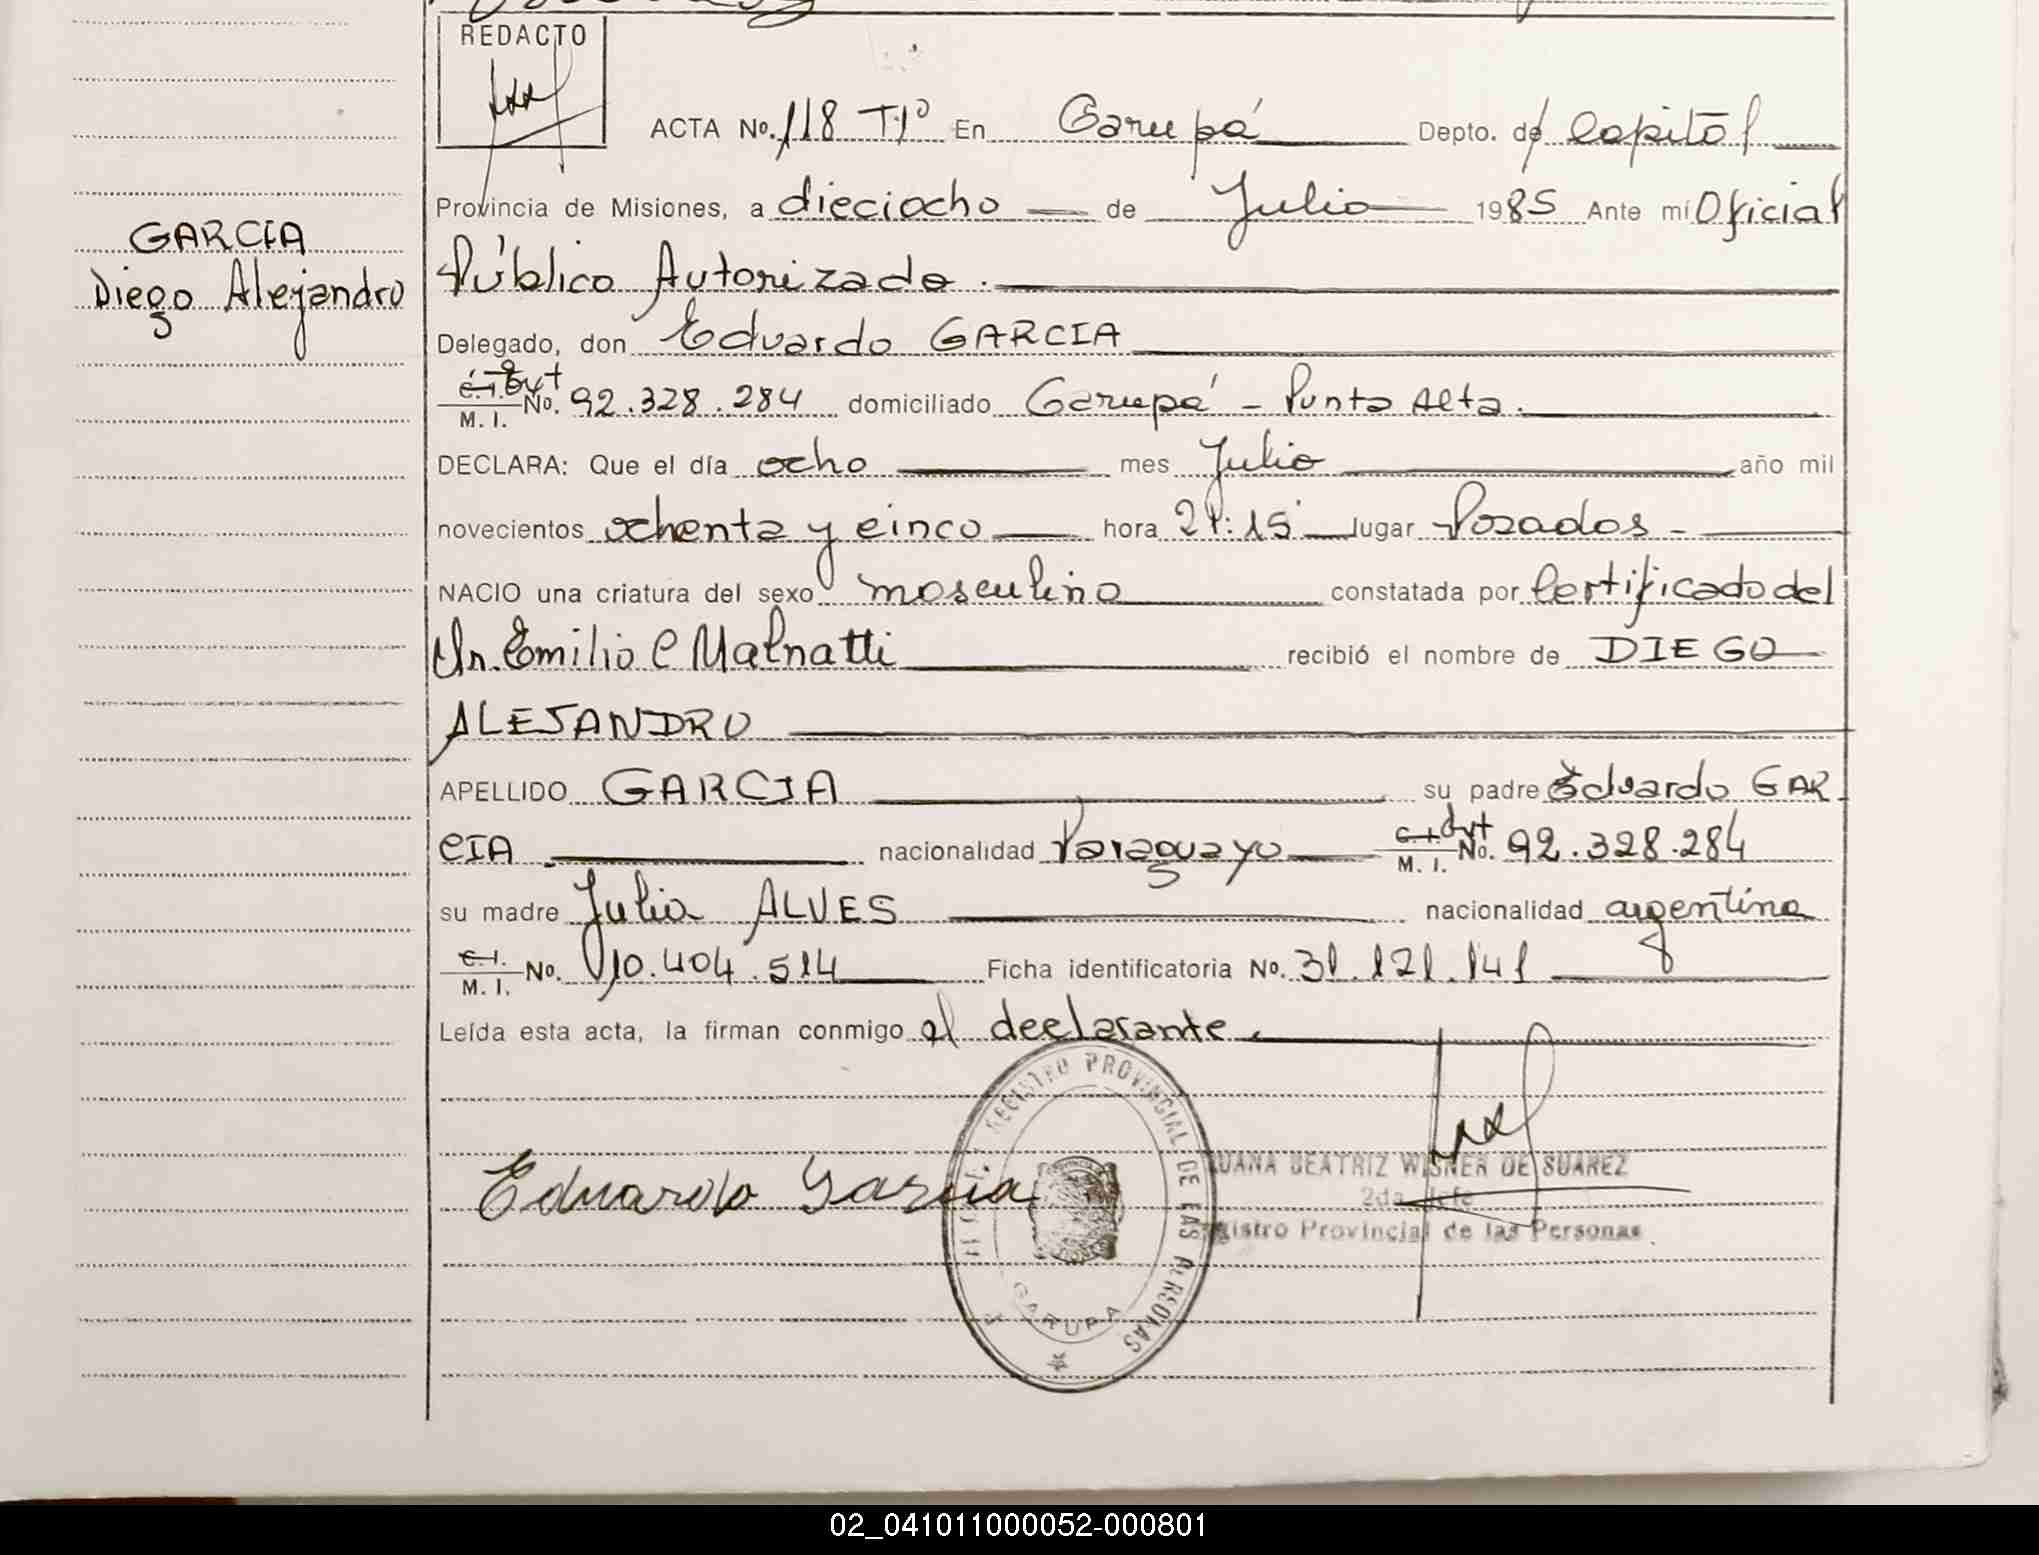 REDACTO
ACTA No. 118 Tº1º En Garupá Depto. de Capital
Provincia de Misiones, a dieciocho de Julio 1985 Ante mí Oficial
GARCIA
Público Autorizado.
Diego Alejandro
Delegado, don Eduardo GARCIA
C.I. M. I. No. 92.328.284 domiciliado Garupá - Punta Alta.
DECLARA: Que el día ocho mes Julio año mil
novecientos ochenta y cinco hora 21:15 lugar Posadas -
NACIO una criatura del sexo masculino constatada por Certificado del
Dr. Emilio C Malnatti recibió el nombre de DIEGO
ALEJANDRO
APELLIDO GARCIA su padre Eduardo GAR
CIA nacionalidad Paraguayo C.I. M. I. No. 92.328.284
su madre Julia ALVES nacionalidad argentina
C.I. M. I. No. 10.404.514 Ficha identificatoria No. 31.121.141
Leída esta acta, la firman conmigo el declarante.
REGISTRO PROVINCIAL DE LAS PERSONAS
GARUPA
Eduardo Garcia
JUANA BEATRIZ WISNER DE SUAREZ
2da Jefe
Registro Provincial de las Personas
02_041011000052-000801